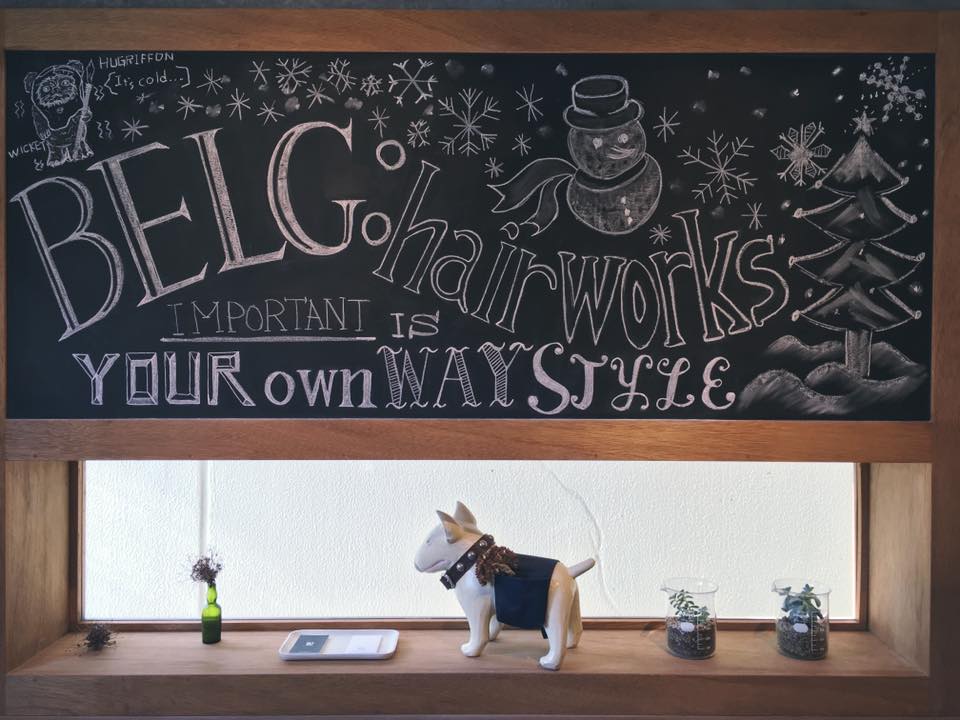 HUGRIFFON
It's cold...
WICKET
BELG
hairworks
IMPORTANT IS
YOUR own WAY STYLE